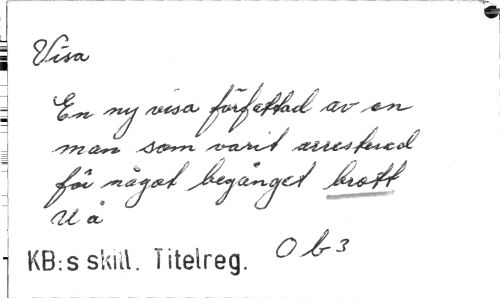 Visa
En ny visa författad av en
man som varit arresterad
för något begånget brott
U å
KB:s skill. Titelreg. O b 3